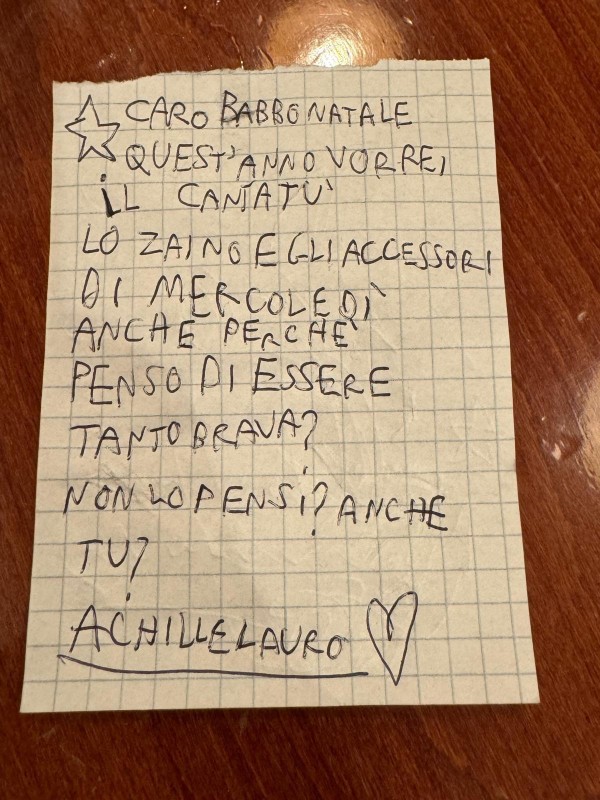 CARO BABBO NATALE
QUEST'ANNO VORREI
IL CANTATÙ
LO ZAINO E GLI ACCESSORI
DI MERCOLEDÌ
ANCHE PERCHÈ
PENSO DI ESSERE
TANTO BRAVA?
NON LO PENSI? ANCHE
TU?
ACHILLE LAURO